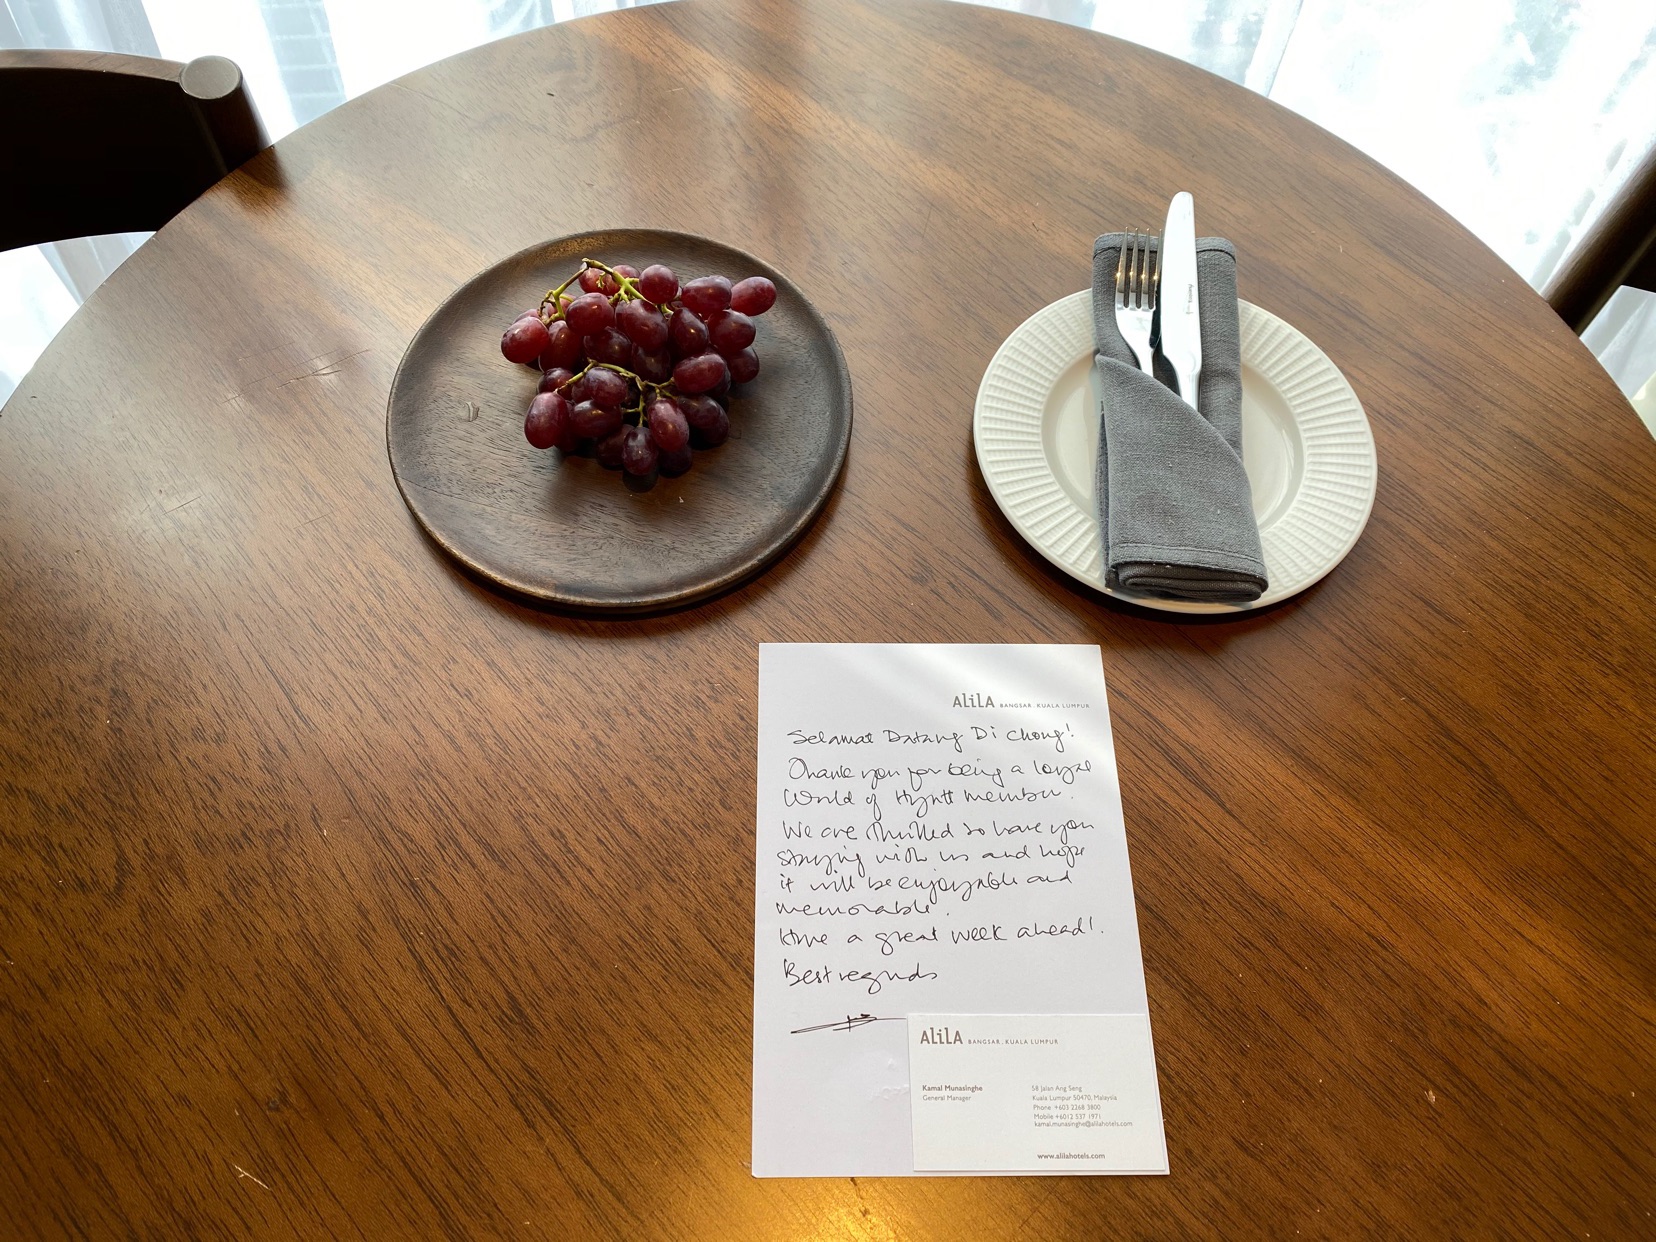 ALiLA BANGSAR, KUALA LUMPUR
Selamat Datang Di Chong!
Thank you for being a loyal
World of Hyatt member.
We are thrilled to have you
staying with us and hope
it will be enjoyable and
memorable.
Have a great week ahead!.
Best regards
ALiLA BANGSAR, KUALA LUMPUR
Kamal Munasinghe
General Manager
58 Jalan Ang Seng
Kuala Lumpur 50470, Malaysia
Phone +603 2268 3800
Mobile +6012 537 1971
kamal.munasinghe@alilahotels.com
www.alilahotels.com